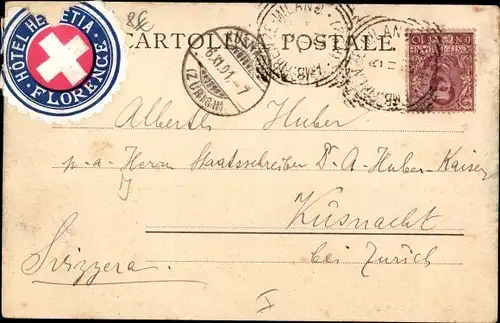 HÔTEL HELVETIA
FLORENCE
CARTOLINA POSTALE.
KÜSNACHT
6.XI.01.-7
(ZÜRICH)
MILANO
Huber
p. a. Herrn Staatsschreiber Dr. A. Huber-Kaiser
Küsnacht
bei Zürich
Svizzera